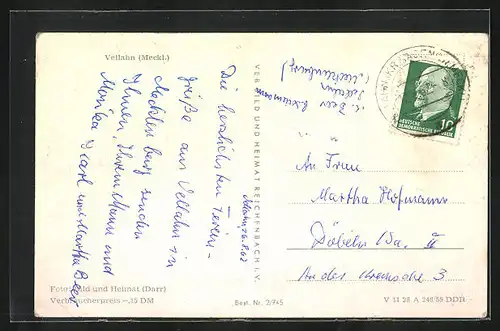 Vellahn (Meckl.)
Die herzlichsten Ferien-
grüße aus Vellahn in
Mecklenburg senden
Ihnen, Ihrem Mann und
Monika Karl und Martha Beer
Foto: Bild und Heimat (Darr)
Verbraucherpreis -,15 DM
VEB BILD UND HEIMAT REICHENBACH I. V.
Best. Nr. 2/745
z. Z. Beer
Vellahn
(Mecklenburg)
DEUTSCHE
DEMOKRATISCHE REPUBLIK
10
An Frau
Martha Hofmann
Döbeln Sa. II
An der
3
V 11 28 A 246/58 DDR